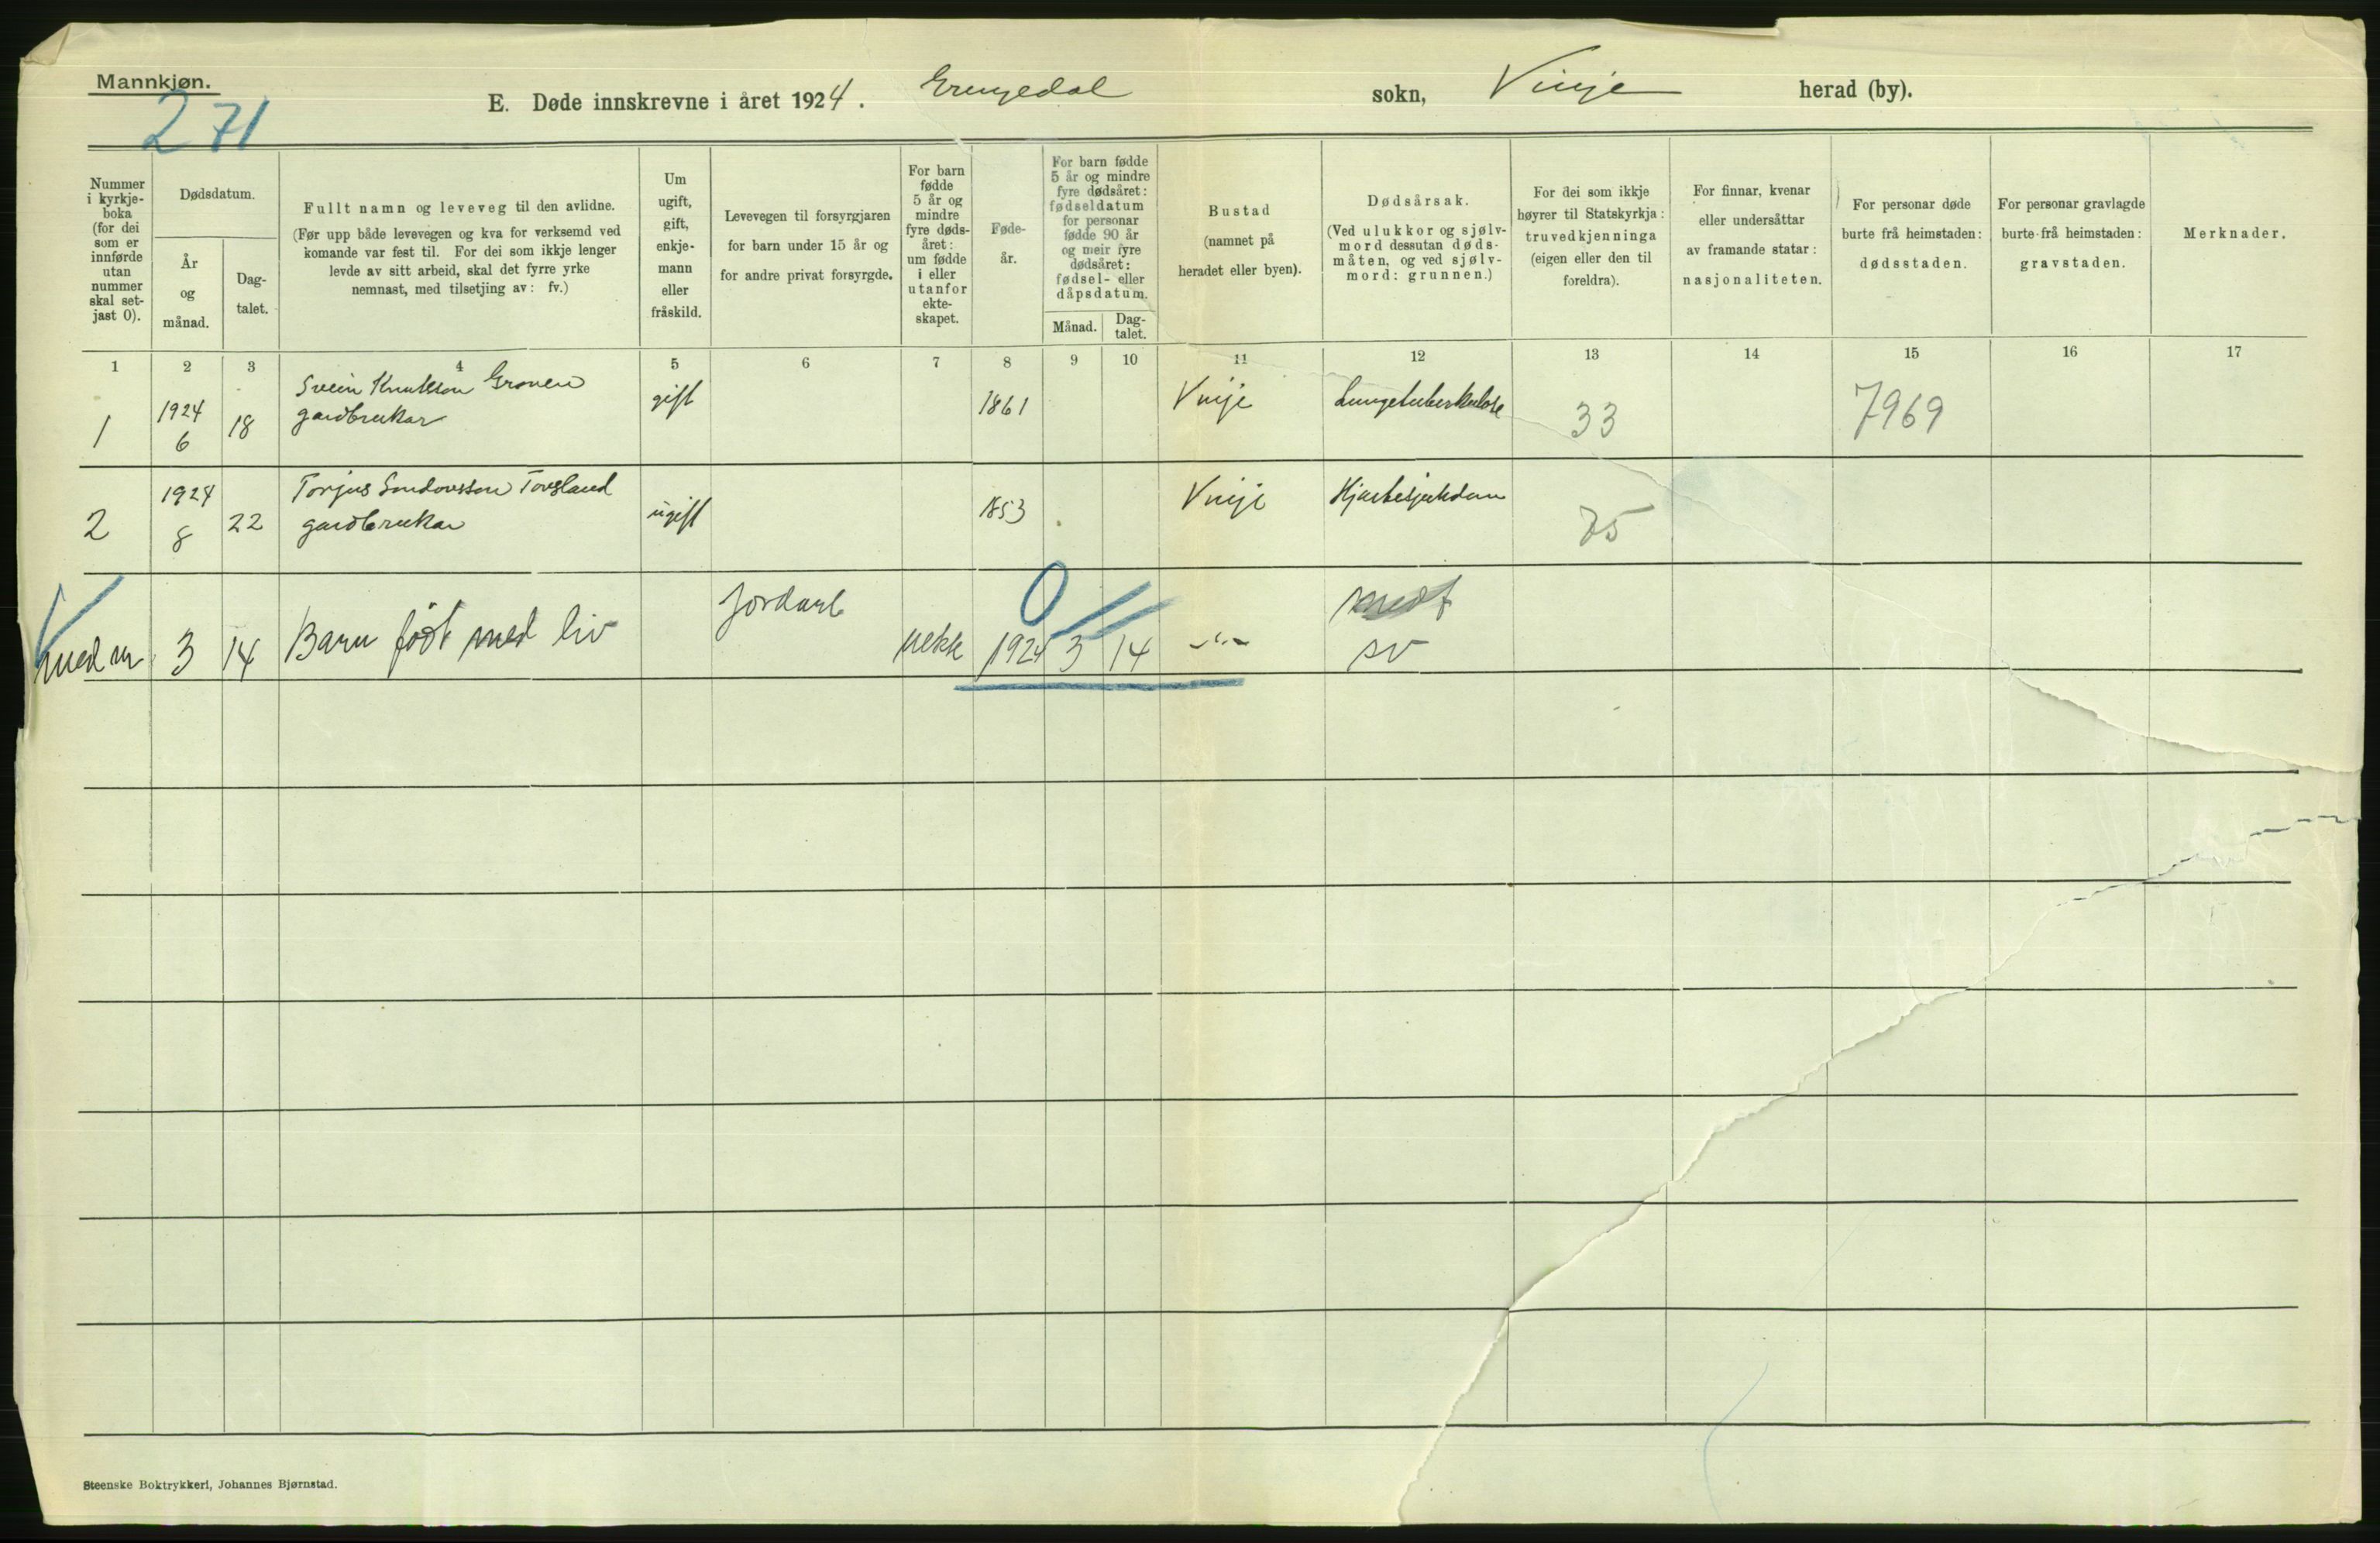 Mannkjøn.
271
E. Døde innskrevne i året 1924. Grungedal sokn, Vinje herad (by).
Nummer
i kyrkje-
boka
(for dei
som er
innførde
utan
nummer
skal set-
jast 0).
Dødsdatum.
År
og
månad.
Dag-
talet.
Fullt namn og leveveg til den avlidne.
(Før upp både levevegen og kva for verksemd ved
komande var fest til. For dei som ikkje lenger
levde av sitt arbeid, skal det fyrre yrke
nemnast, med tilsetjing av: fv.)
Um
ugift,
gift,
enkje-
mann
eller
fråskild.
Levevegen til forsyrgjaren
for barn under 15 år og
for andre privat forsyrgde.
For barn
fødde
5 år og
mindre
fyre døds-
året:
um fødde
i eller
utanfor
ekte-
skapet.
Føde-
år.
For barn fødde
5 år og mindre
fyre dødsåret:
fødseldatum
for personar
fødde 90 år
og meir fyre
dødsåret:
fødsel- eller
dåpsdatum.
Månad.
Dag-
talet.
Bustad
(namnet på
heradet eller byen).
Dødsårsak.
(Ved ulukkor og sjølv-
mord dessutan døds-
måten, og ved sjølv-
mord: grunnen.)
For dei som ikkje
høyrer til Statskyrkja:
truvedkjenninga
(eigen eller den til
foreldra).
For finnar, kvenar
eller undersåttar
av framande statar:
nasjonaliteten.
For personar døde
burte frå heimstaden:
dødsstaden.
For personar gravlagde
burte frå heimstaden:
gravstaden.
Merknader.
1 2 3 4 5 6 7 8 9 10 11 12 13 14 15 16 17
1 1924 6 18 Svein Knutsson Groven gift 1861 Vinje Lungetuberkulose 33 7969
gardbrukar
2 1924 8 22 Torjus Sondovsson Tovsland ugift 1853 Vinje Hjartesjukdom 75
gardbrukar
0
jordarb
med m 3 14 Barn født med liv uekte 1924 3 14 -"- sv
Steenske Boktrykkeri, Johannes Bjørnstad.